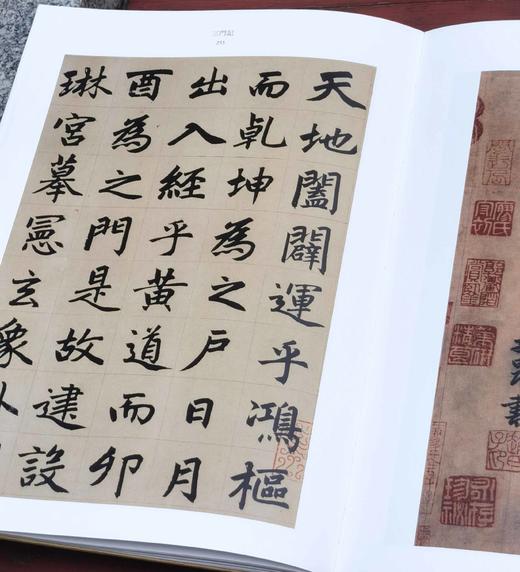 三門記
天地闔闢運乎鴻樞
而乾坤為之戶日月
出入經乎黃道而卯
酉為之門是故建設
琳宮摹憲玄象
書